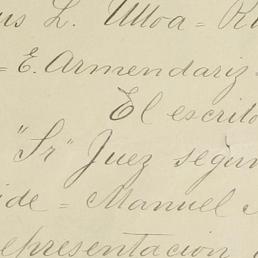 us L. Ulloa = R
= E. Armendariz
El escrito
"Sr" Juez segun
ide = Manuel
epresentacion